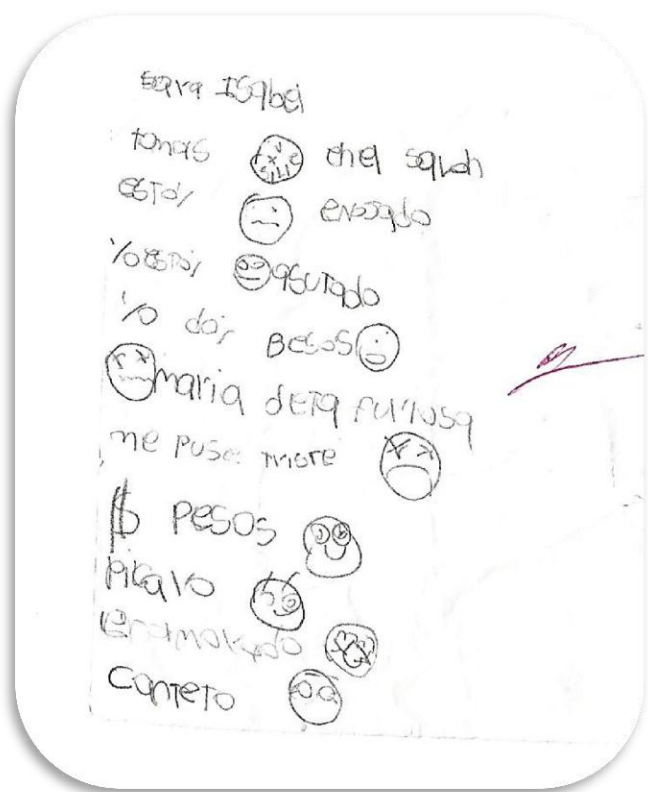 sara ISabel
tomas en el
estoy enojado
yo estoy asutado
yo doy Besos
maria furiosa
me puse triste
$ pesos
pikaro
enamorado
conteto